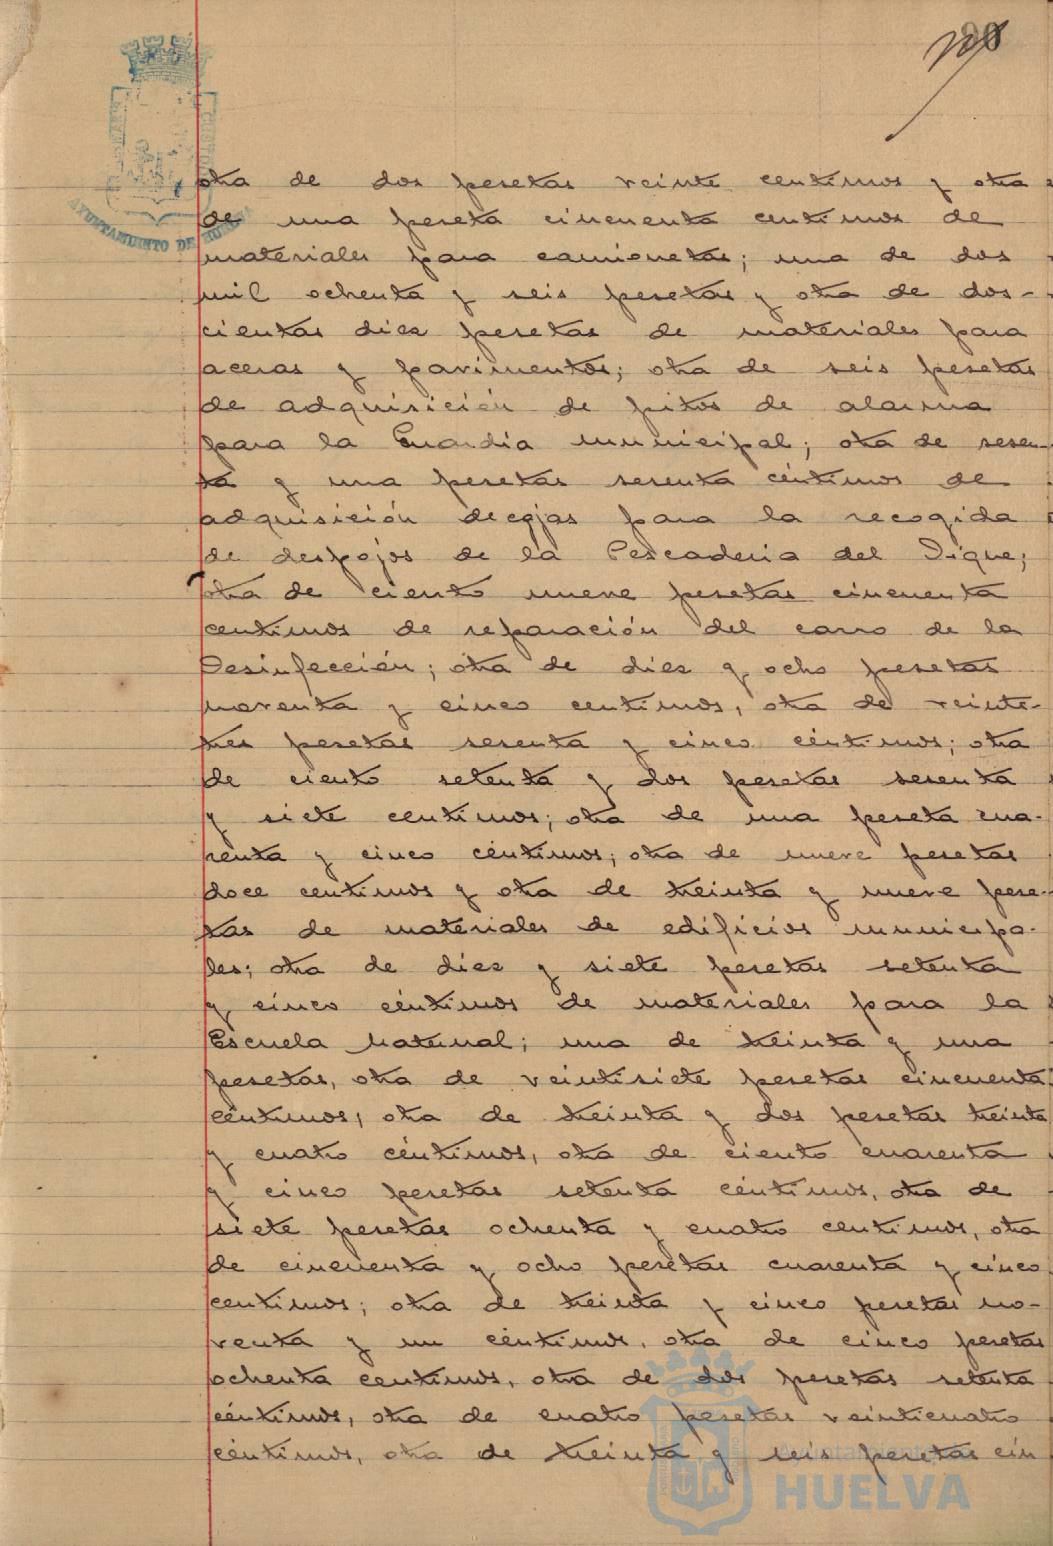 90
otra de dos pesetas veinte centimos y otra
de una peseta cincuenta centimos de
materiales para camionetas; una de dos
mil ochenta y seis pesetas y otra de dos-
cientas diez pesetas de materiales para
aceras y pavimentos; otra de seis pesetas
de adquisición de pitos de alarma
para la Guardia municipal; otra de sesen-
ta y una pesetas sesenta céntimos de
adquisición decajas para la recogida
de despojos de la Pescaderia del Dique;
otra de ciento nueve pesetas cincuenta
centimos de reparación del carro de la
Desinfección; otra de diez y ocho pesetas
noventa y cinco centimos, otra de veinte-
tres pesetas sesenta y cinco céntimos; otra
de ciento setenta y dos pesetas sesenta
y siete centimos; otra de una peseta cua-
renta y cinco céntimos; otra de nueve pesetas
doce centimos y otra de treinta y nueve pese-
tas de materiales de edificios municipa-
les; otra de diez y siete pesetas setenta
y cinco céntimos de materiales para la
Escuela Maternal; una de treinta y una
pesetas, otra de veintisiete pesetas cincuenta
céntimos, otra de treinta y dos pesetas treinta
y cuatro céntimos, otra de ciento cuarenta
y cinco pesetas setenta céntimos, otra de
siete pesetas ochenta y cuatro centimos, otra
de cincuenta y ocho pesetas cuarenta y cinco
centimos; otra de treinta y cinco pesetas no-
venta y un céntimos, otra de cinco pesetas
ochenta centimos, otra de dos pesetas setenta
céntimos, otra de cuatro pesetas veinticuatro
céntimos, otra de treinta y seis pesetas cin
AYUNTAMIENTO DE HUELVA
Ayuntamiento de
HUELVA